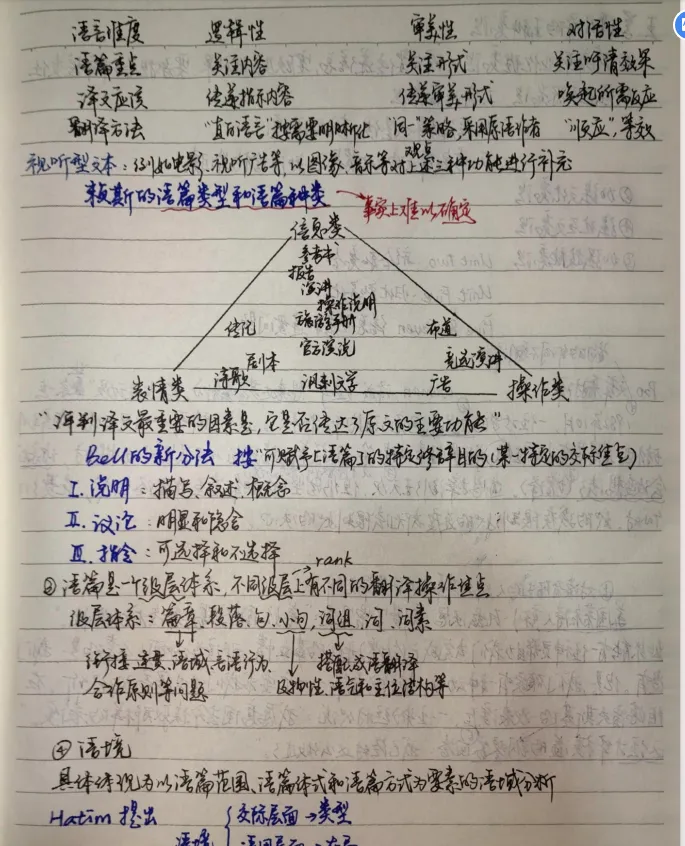 语言维度 逻辑性 审美性 对话性
语篇重点 关注内容 关注形式 关注呼请效果
译文应该 传递指示内容 传递审美形式 唤起所需反应
翻译方法 “直白语言”按需要明晰化 “同一”策略,采用原语作者观点 “顺应”,等效
视听型文本:例如电影、视听广告等,以图像、音乐等对上述三种功能进行补充
赖斯的语篇类型和语篇种类 → 事实上难以确定
信息类
参考书
报告
演讲
操作说明
旅游手册
传记 官方演说 布道
剧本 竞选演讲
表情类 诗歌 讽刺文学 广告 操作类
“评判译文最重要的因素是,它是否传达了原文的主要功能”
Bell的新分法 按“可赋予上语篇”的特定修辞目的(某一特定的交际焦点)
Ⅰ.说明:描写、叙述、概念
Ⅱ.议论:明显和隐含
Ⅲ.指令:可选择和不选择
③语篇是一个级层体系,不同级层上有不同的翻译操作焦点
rank
级层体系:篇章、段落、句、小句、词组、词、词素
衔接、连贯、语域、言语行为、 搭配、成语翻译
合作原则等问题 及物性、语气和主位结构等
④语境
具体体现为以语篇范围、语篇体式和语篇方式为要素的语域分析
Hatim 提出
语境 { 交际层面→类型
语用层面→